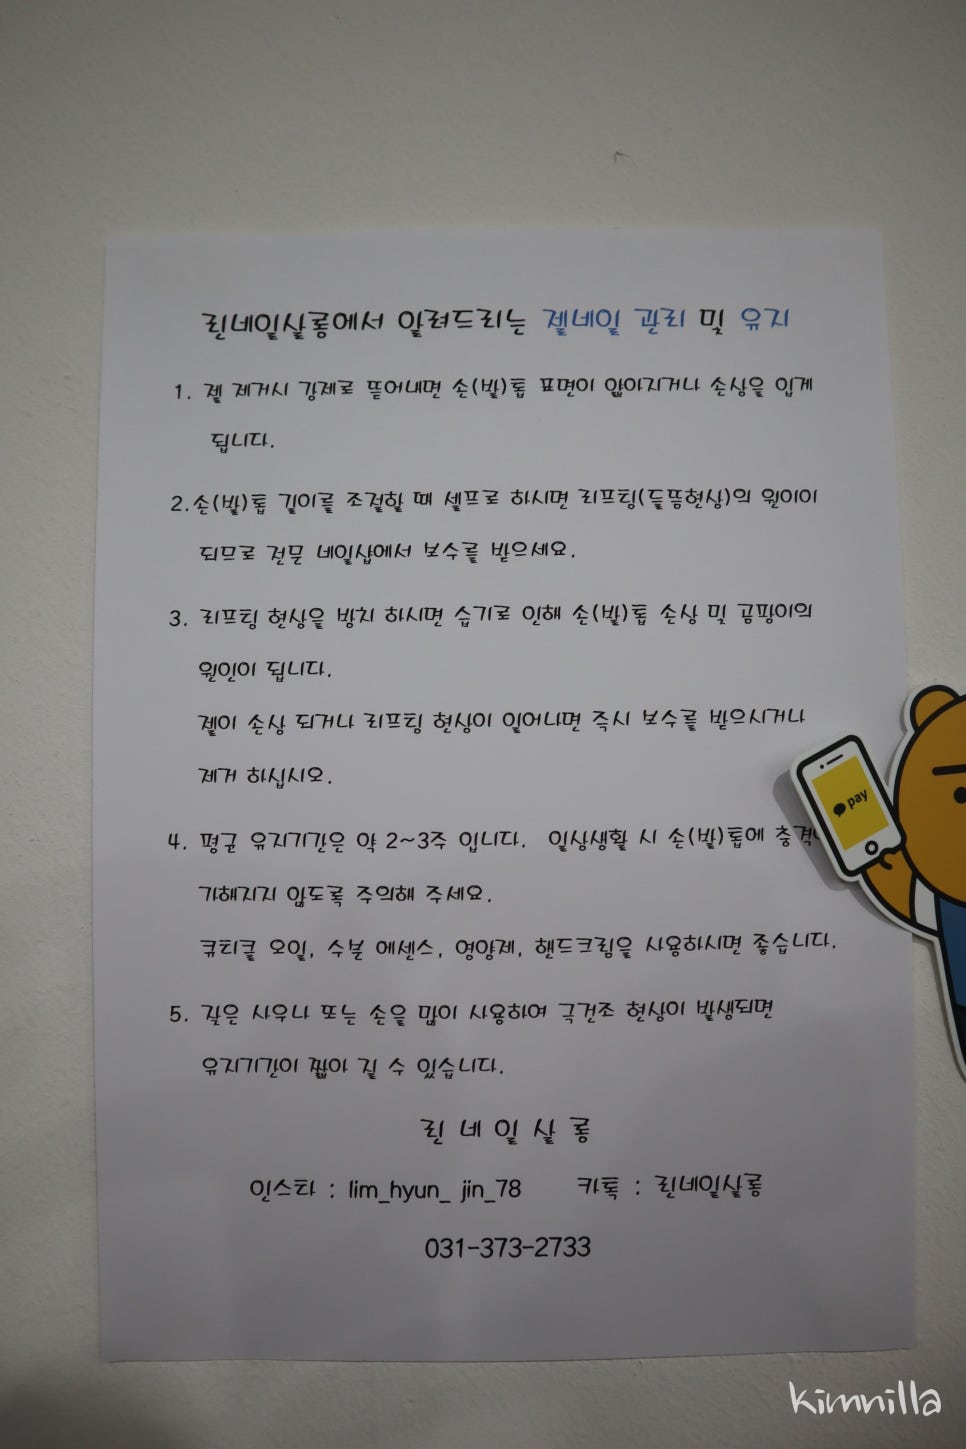 린네일살롱에서 알려드리는 젤네일 관리 및 유지
1. 젤 제거시 강제로 뜯어내면 손(발)톱 표면이 얇아지거나 손상을 입게
됩니다.
2.손(발)톱 길이를 조절할 때 셀프로 하시면 리프팅(들뜸현상)의 원이이
되므로 전문 네일샵에서 보수를 받으세요.
3. 리프팅 현상을 방치 하시면 습기로 인해 손(발)톱 손상 및 곰팡이의
원인이 됩니다.
젤이 손상 되거나 리프팅 현상이 일어나면 즉시 보수를 받으시거나
제거 하십시오.
4. 평균 유지기간은 약 2~3주 입니다. 일상생활 시 손(발)톱에
가해지지 않도록 주의해 주세요.
큐티클 오일, 수분 에센스, 영양제, 핸드크림을 사용하시면 좋습니다.
5. 잦은 사우나 또는 손을 많이 사용하여 극건조 현상이 발생되면
유지기간이 짧아 질 수 있습니다.
린 네 일 살 롱
인스타 : lim_hyun_ jin_78 카톡 : 린네일살롱
031-373-2733
pay
kimnilla